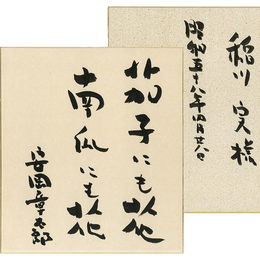 茄子にも花
南瓜にも花
安岡章太郎
稲川 実様
昭和五十八年四月廿八日